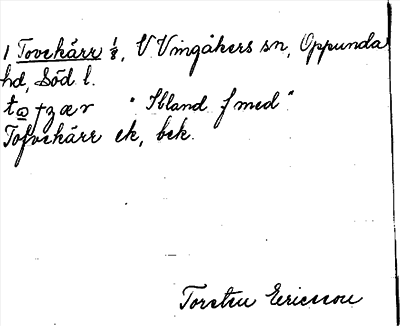 1 Tovekärr 1/8, V Vingåkers sn, Oppunda
hd, Söd l.
"Ibland f med".
Tofvekärr ek, bek.
Torsten Ericsson